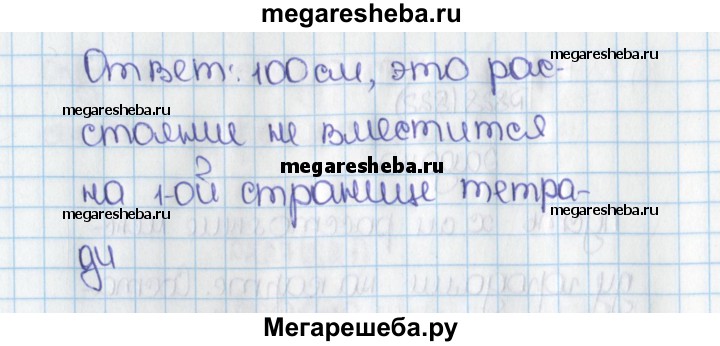 megaresheba.ru
Ответ: 100 см, это рас-
megaresheba.ru
megaresheba.ru
стояние не вместится
megaresheba.ru
на 1-ой странице тетра-
megaresheba.ru
megaresheba.ru
ди
Мегарешеба.ру